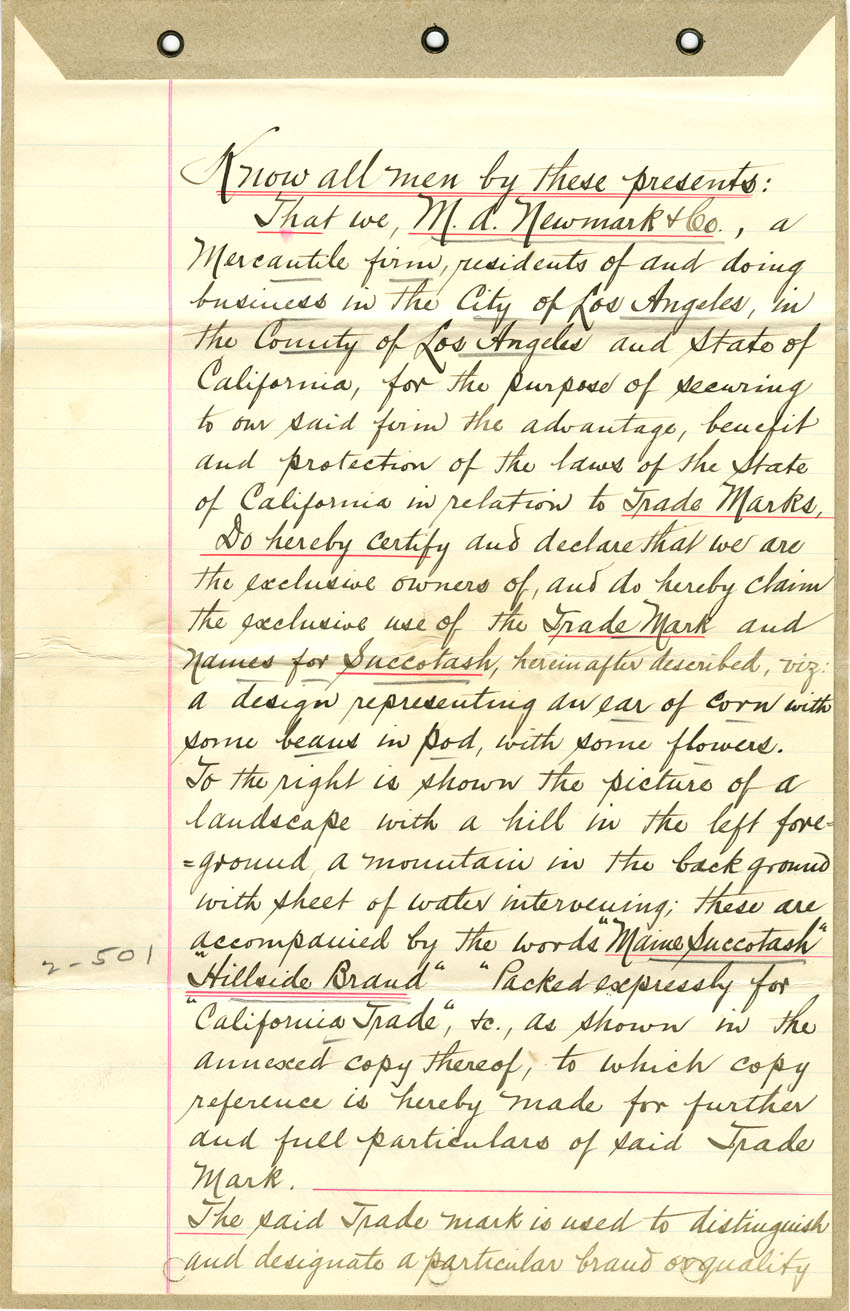 Know all men by these presents:
That we, M. A. Newmark & Co., a
Mercantile firm, residents of and doing
business in the City of Los Angeles, in
the County of Los Angeles and State of
California, for the purpose of securing
to our said firm the advantage, benefit
and protection of the laws of the State
of California in relation to Trade Marks,
Do hereby certify and declare that we are
the exclusive owners of, and do hereby claim
the exclusive use of the Trade Mark and
Names for Succotash, hereinafter described, viz:
a design representing an ear of corn with
some beans in pod, with some flowers.
To the right is shown the picture of a
landscape with a hill in the left fore=
=ground, a mountain in the background
with sheet of water intervening; these are
accompanied by the words "Maine Succotash"
2-501
"Hillside Brand" "Packed expressly for
"California Trade", &c., as shown in the
annexed copy thereof, to which copy
reference is hereby made for further
and full particulars of said Trade
Mark.
The said Trade mark is used to distinguish
and designate a particular brand or quality